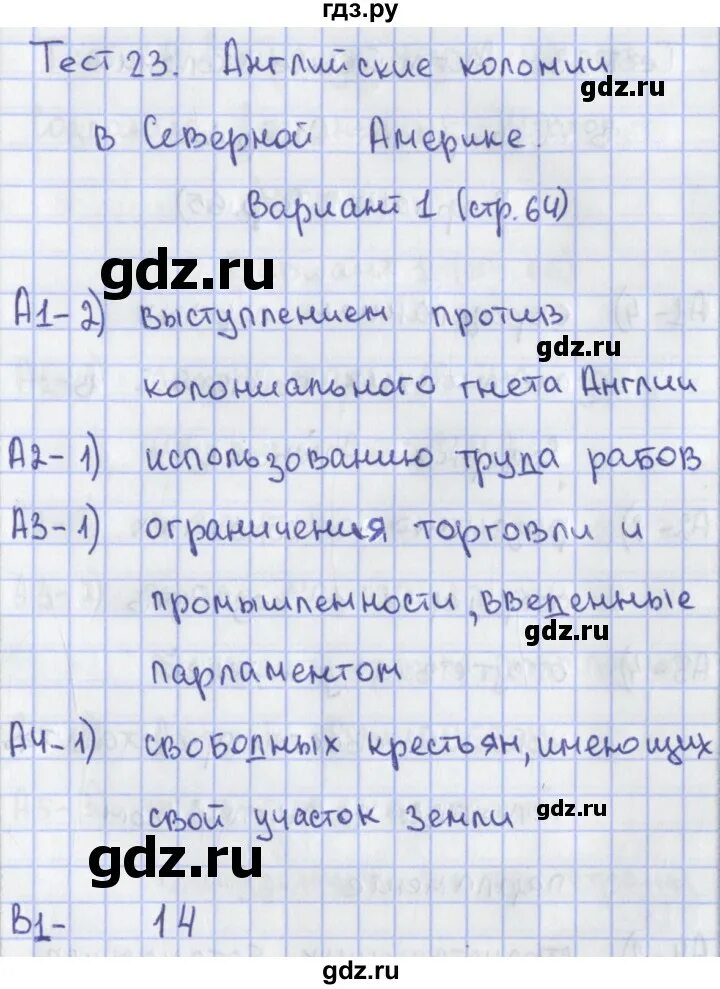 гдз.ру
Тест 23. Английские колонии
gdz.ru
в Северной Америке.
Вариант 1 (стр. 64)
gdz.ru
А1-2) выступлением против
gdz.ru
колониального гнета Англии
А2-1) использованию труда рабов
А3-1) ограничения торговли и
промышленности, введенные
gdz.ru
парламентом
А4-1) свободных крестьян, имеющих
свой участок земли
gdz.ru
gdz.ru
В1- 14
gdz.ru